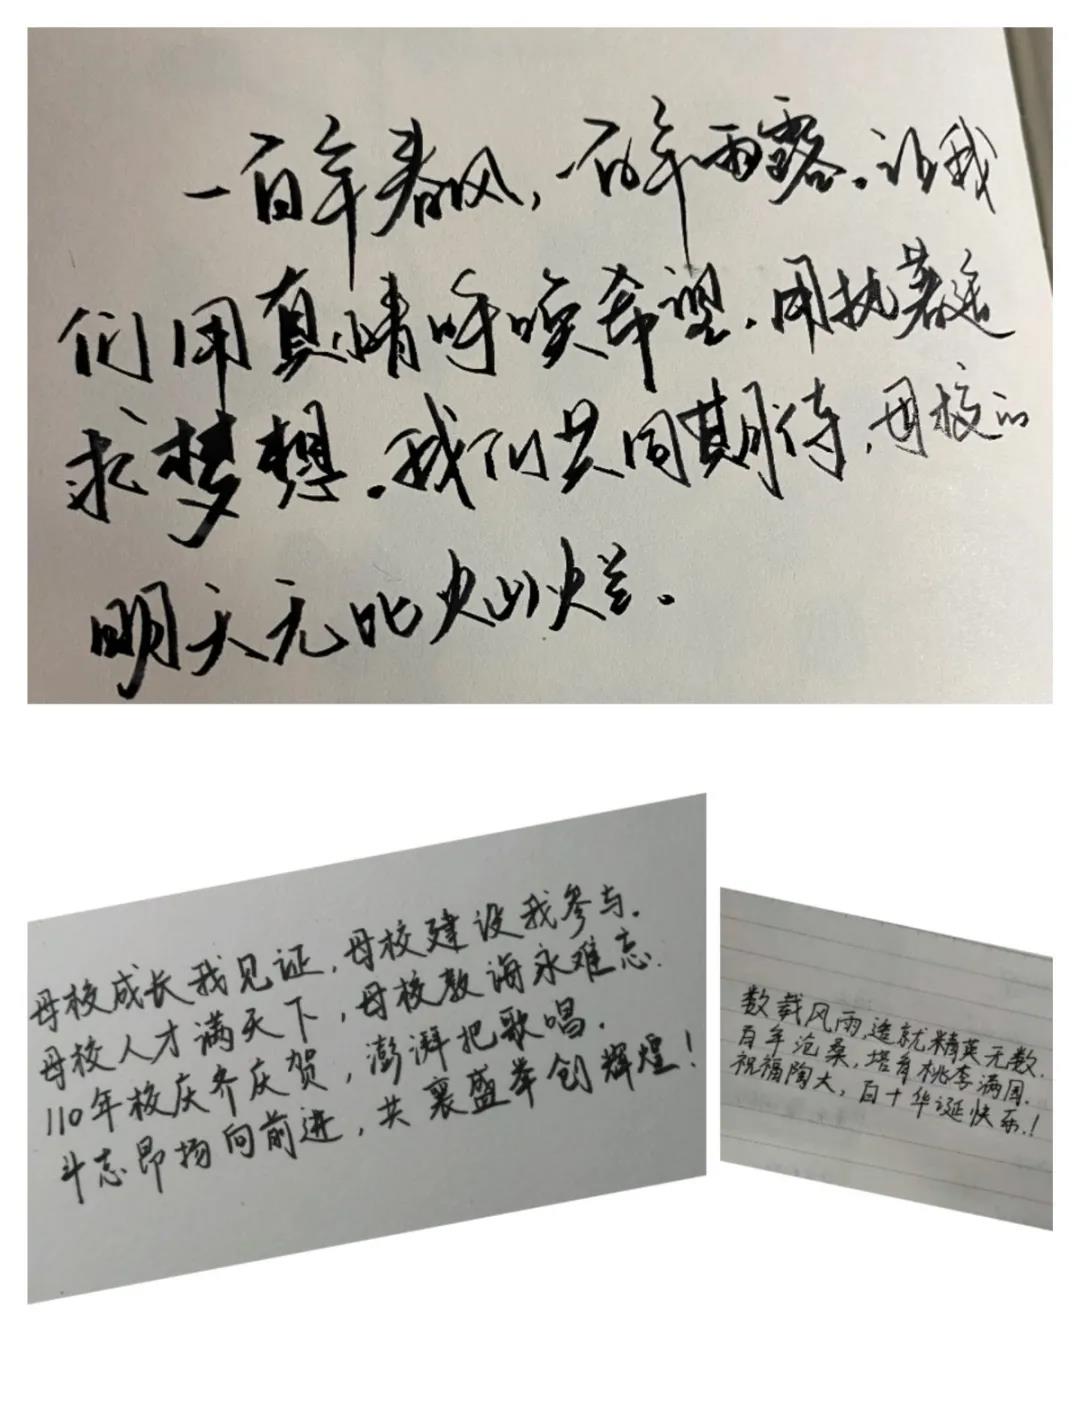 一百年春风，一百年雨露。让我
们用真情呼唤希望，用执著追
求梦想。我们共同期待，母校的
明天无比灿烂。
母校成长我见证，母校建设我参与。
母校人才满天下，母校教诲永难忘。
110年校庆齐庆贺，澎湃把歌唱。
斗志昂扬向前进，共襄盛举创辉煌！
数载风雨，造就精英无数。
百年沧桑，培育桃李满园。
祝福陶大，百十华诞快乐！